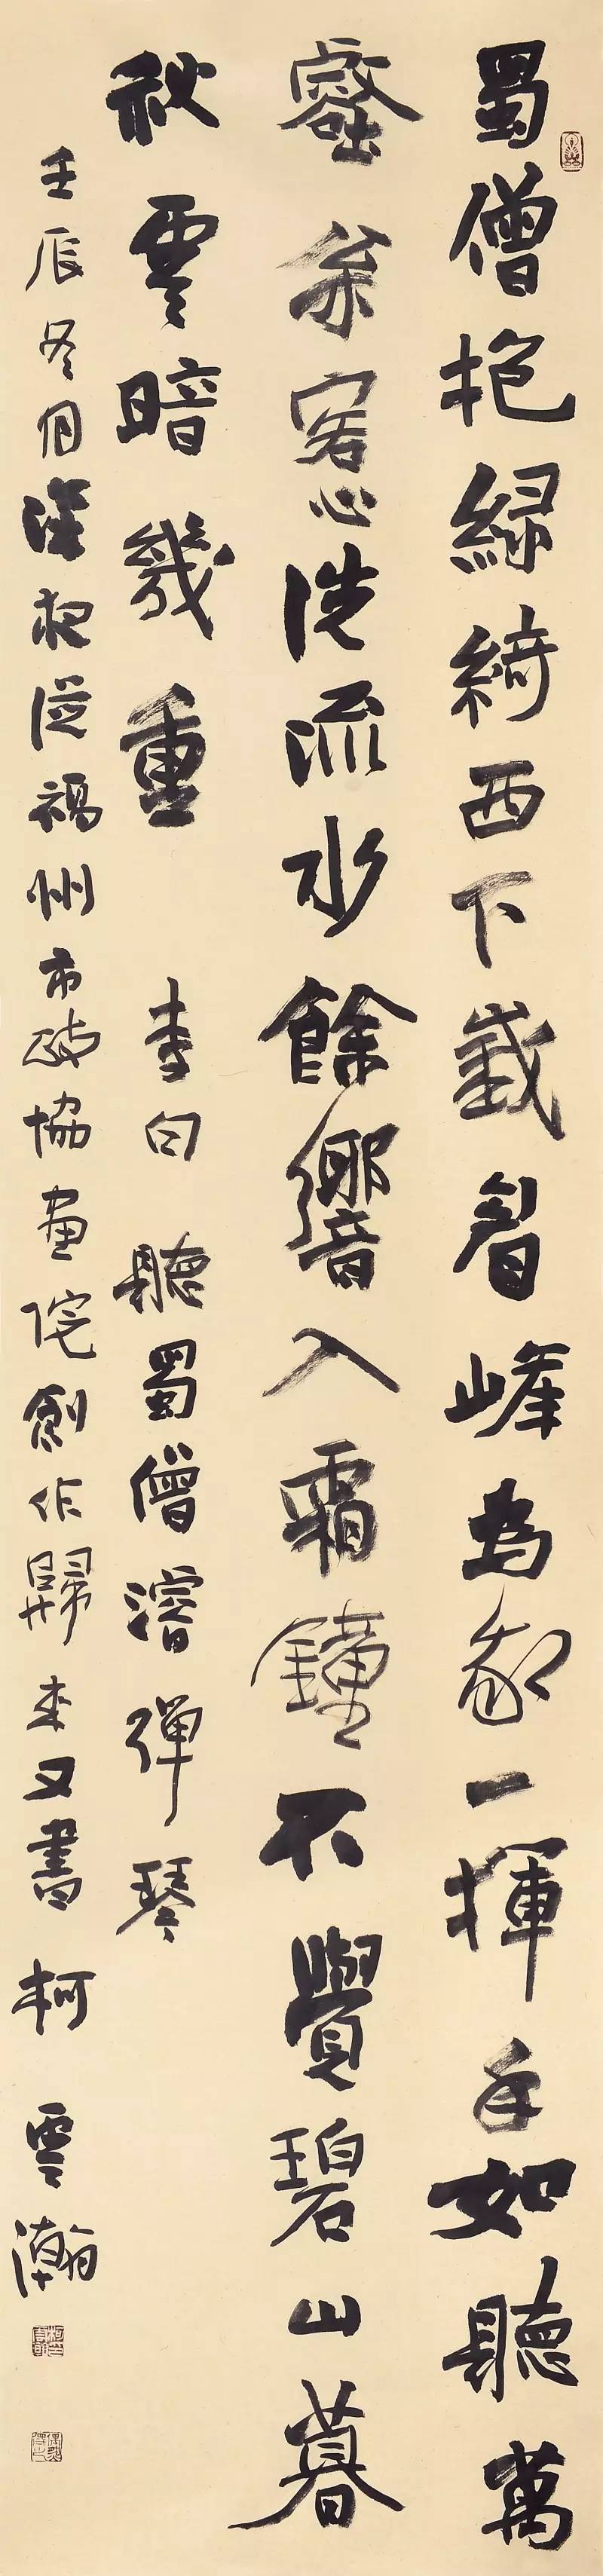 蜀僧抱綠綺西下峨眉峰為我一揮手如聽萬
壑枀客心洗流水餘響入霜鐘不覺碧山暮
秋雲暗幾重 李白 聽蜀僧濬彈琴
壬辰冬月深夜從福州市政協畫院創作歸來又書 柯雲瀚